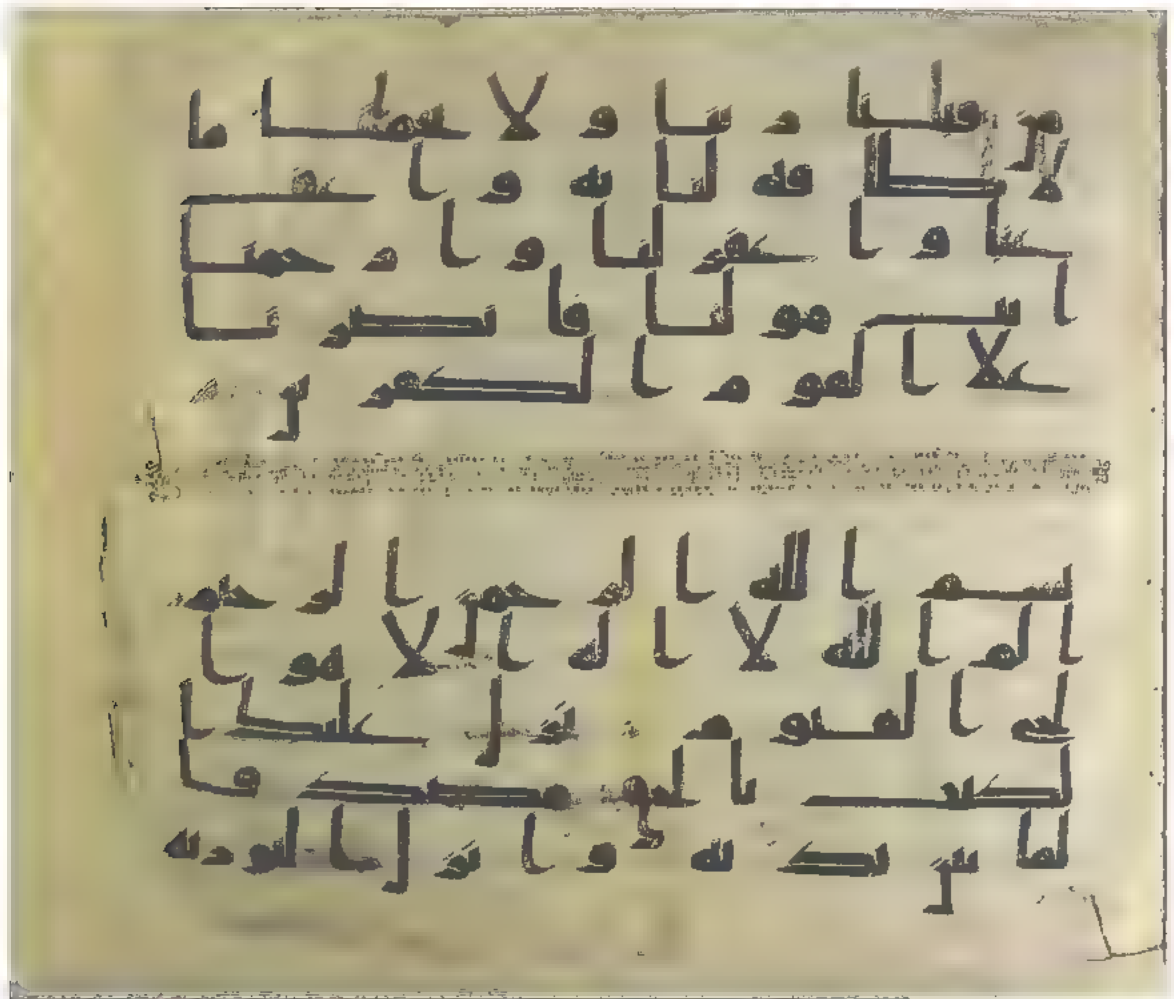 من قبلنا ربنا ولا تحملنا ما
لا طاقة لنا به واعف
عنا واغفر لنا وارحمنا
انت مولينا فانصرنا
على القوم الكفرين
بسم الله الرحمن الرحيم
الم الله لا اله الا هو ا
لحي القيوم نزل عليك ا
لكتب بالحق مصدقا
لما بين يديه وانزل التورية